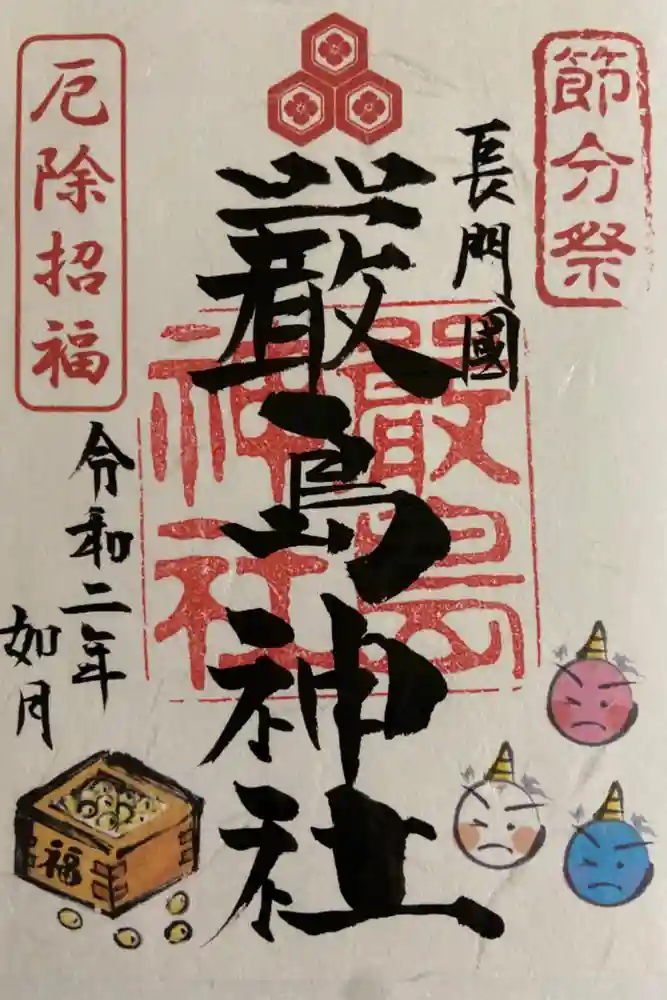 節分祭
長門國
嚴島神社
嚴島
神社
厄除招福
令和二年
如月
福